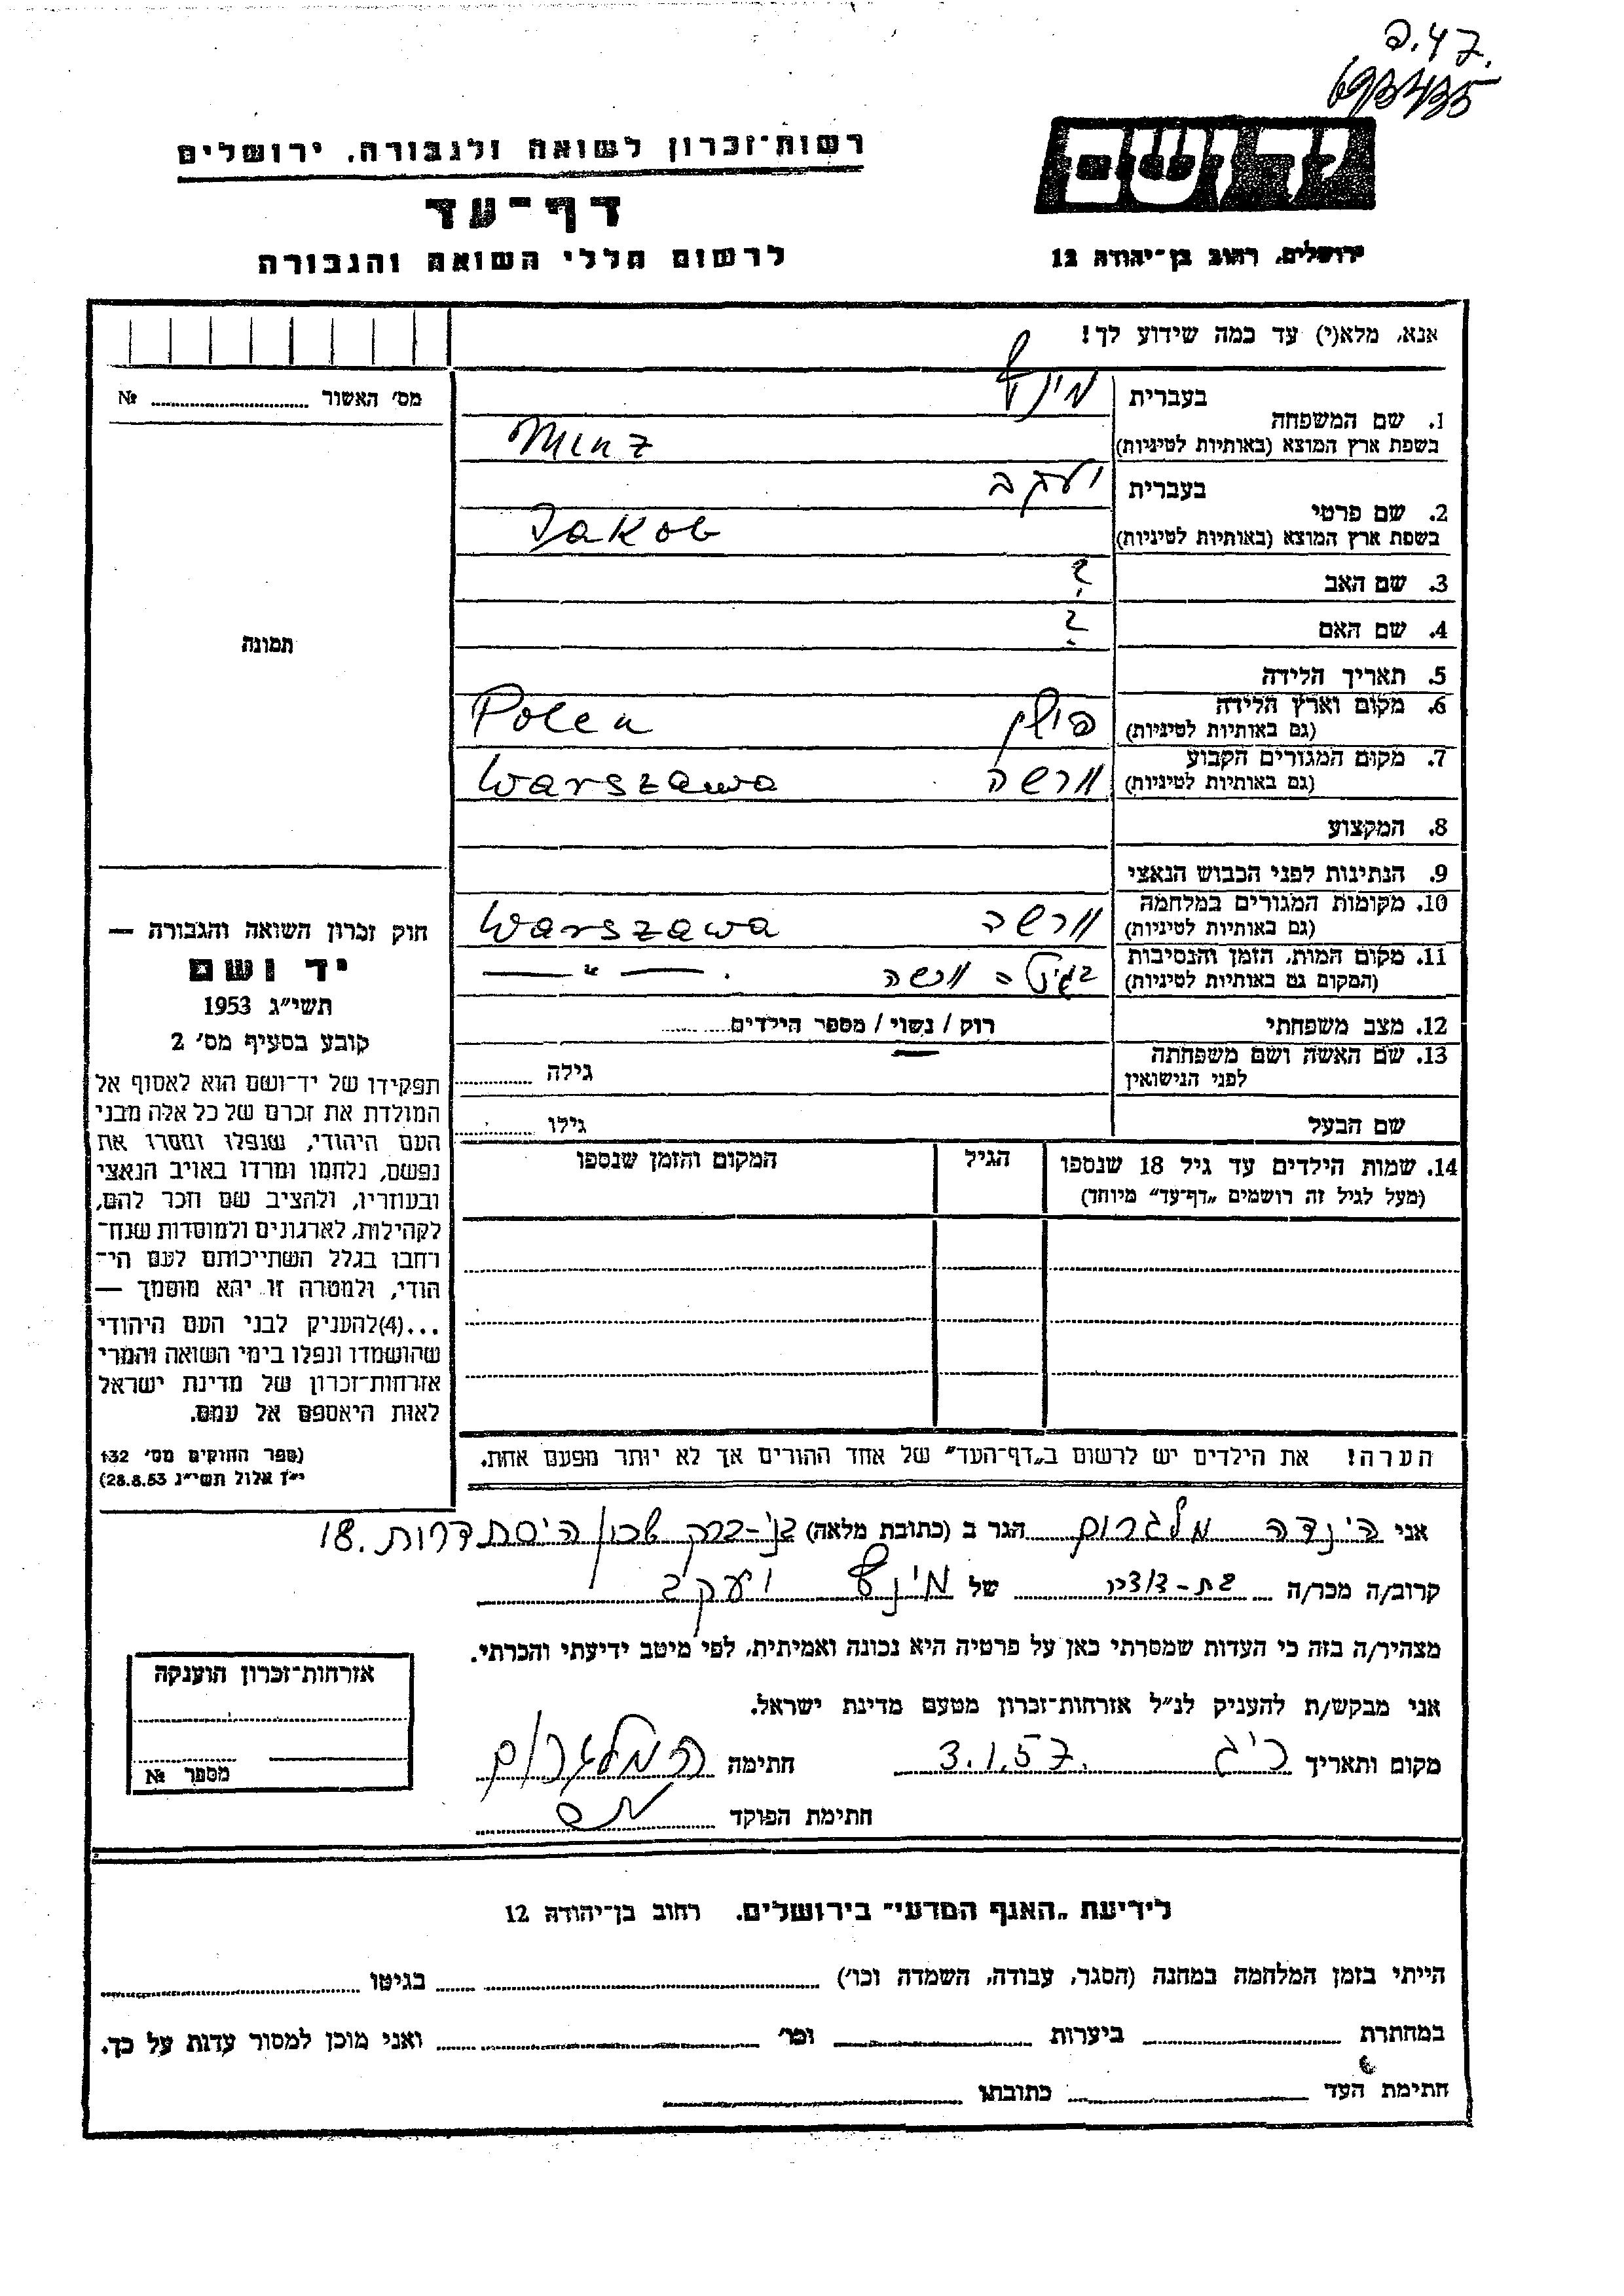 פ.47.
693435
יד ושם
רשות־זכרון לשואה ולגבורה, ירושלים
דף־עד
לרשום חללי השואה והגבורה
ירושלים, רחוב בן־יהודה 12
אנא, מלא(י) עד כמה שידוע לך!
מס׳ האשור № 
תמונה
בעברית מינץ
1. שם המשפחה
בשפת ארץ המוצא (באותיות לטיניות) Minz
בעברית יעקב
2. שם פרטי
בשפת ארץ המוצא (באותיות לטיניות) Jakob
3. שם האב ?
4. שם האם ?
5. תאריך הלידה
6. מקום וארץ הלידה פולין Polen
(גם באותיות לטיניות)
7. מקום המגורים הקבוע ורשה Warszawa
(גם באותיות לטיניות)
8. המקצוע
9. הנתינות לפני הכבוש הנאצי
10. מקומות המגורים במלחמה ורשה Warszawa
(גם באותיות לטיניות)
11. מקום המות, הזמן והנסיבות ורשה — " —
(המקום גם באותיות לטיניות)
12. מצב משפחתי רוק / נשוי / מספר הילדים
13. שם האשה ושם משפחתה
לפני הנישואין גילה
שם הבעל גילו
14. שמות הילדים עד גיל 18 שנספו הגיל המקום והזמן שנספו
(מעל לגיל זה רושמים „דף־עד״ מיוחד)
הערה! את הילדים יש לרשום ב„דף־העד״ של אחד ההורים אך לא יותר מפעם אחת.
חוק זכרון השואה והגבורה —
יד ושם
תשי״ג 1953
קובע בסעיף מס׳ 2
תפקידו של יד־ושם הוא לאסוף אל
המולדת את זכרם של כל אלה מבני
העם היהודי, שנפלו ומסרו את
נפשם, נלחמו ומרדו באויב הנאצי
ובעוזריו, ולהציב שם וזכר להם,
לקהילות, לארגונים ולמוסדות שנח־
רחבו בגלל השתייכותם לעם הי־
הודי, ולמטרה זו יהא מוסמך —
...(4)להעניק לבני העם היהודי
שהושמדו ונפלו בימי השואה והמרי
אזרחות־זכרון של מדינת ישראל
לאות היאספם אל עמם.
(ספר החוקים מס׳ 132
י״ז אלול תשי״ג 28.8.53)
אני הינדה מלגרום הגר ב (כתובת מלאה) בני-ברק שכון היסתדרות. 18
קרוב/ה מכר/ה בת-דודיו של מינץ יעקב
מצהיר/ה בזה כי העדות שמסרתי כאן על פרטיה היא נכונה ואמיתית, לפי מיטב ידיעתי והכרתי.
אני מבקש/ת להעניק לנ״ל אזרחות־זכרון מטעם מדינת ישראל.
מקום ותאריך ר"ג 3.1.57. חתימה ה מלגרום
חתימת הפוקד
אזרחות־זכרון הוענקה
מספר №
לידיעת „האגף המדעי״ בירושלים. רחוב בן־יהודה 12
הייתי בזמן המלחמה במחנה (הסגר, עבודה, השמדה וכו׳) בגיטו
במחתרת ביערות וכו׳ ואני מוכן למסור עדות על כך.
חתימת העד כתובתו